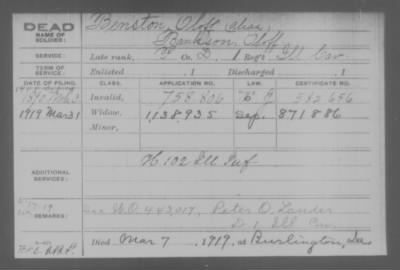 DEAD
NAME OF SOLDIER:
Benston, Oloff (alias)
Bankson, Oloff
SERVICE:
Late rank, Co. D, 1 Reg't Ill Cav
TERM OF SERVICE:
Enlisted , 1 Discharged , 1
DATE OF FILING. CLASS. APPLICATION NO. LAW. CERTIFICATE NO.
Invalid, 758806 582656
1919 Mar 31 Widow, 1,138,935 Sep. 871886
Minor,
ADDITIONAL SERVICES:
K 102 Ill Inf
REMARKS:
442017, Peter O. Lander
D 1 Ill Cav
Died Mar 7, 1919, at Burlington, Ia